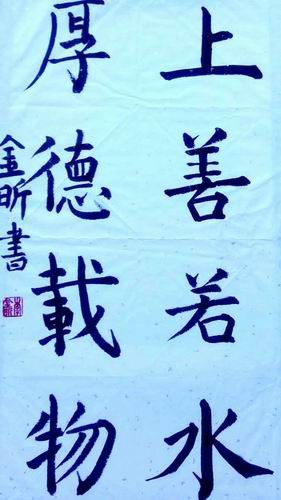 上善若水
厚德載物
金昕書